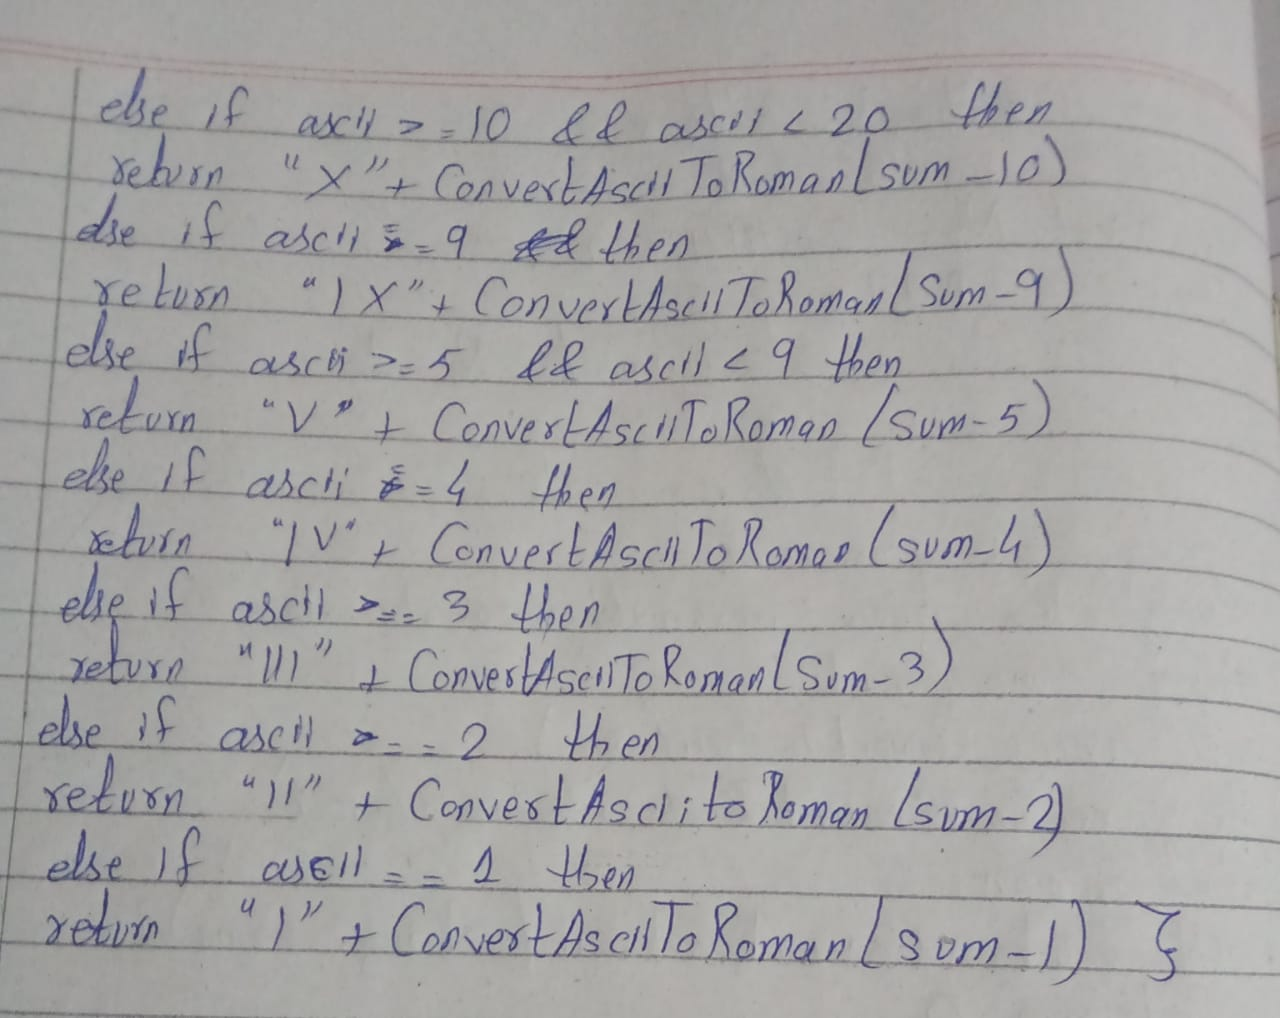 else if ascii >= 10 && ascii < 20 then
return "X" + ConvertAsciiToRoman(sum-10)
else if ascii == 9 then
return "IX" + ConvertAsciiToRoman(Sum-9)
else if ascii >= 5 && ascii < 9 then
return "V" + ConvertAsciiToRoman(sum-5)
else if ascii == 4 then
return "IV" + ConvertAsciiToRoman(sum-4)
else if ascii >== 3 then
return "III" + ConvertAsciiToRoman(Sum-3)
else if ascii >== 2 then
return "II" + ConvertAsciitoRoman(sum-2)
else if ascii == 1 then
return "I" + ConvertAsciiToRoman(sum-1) }